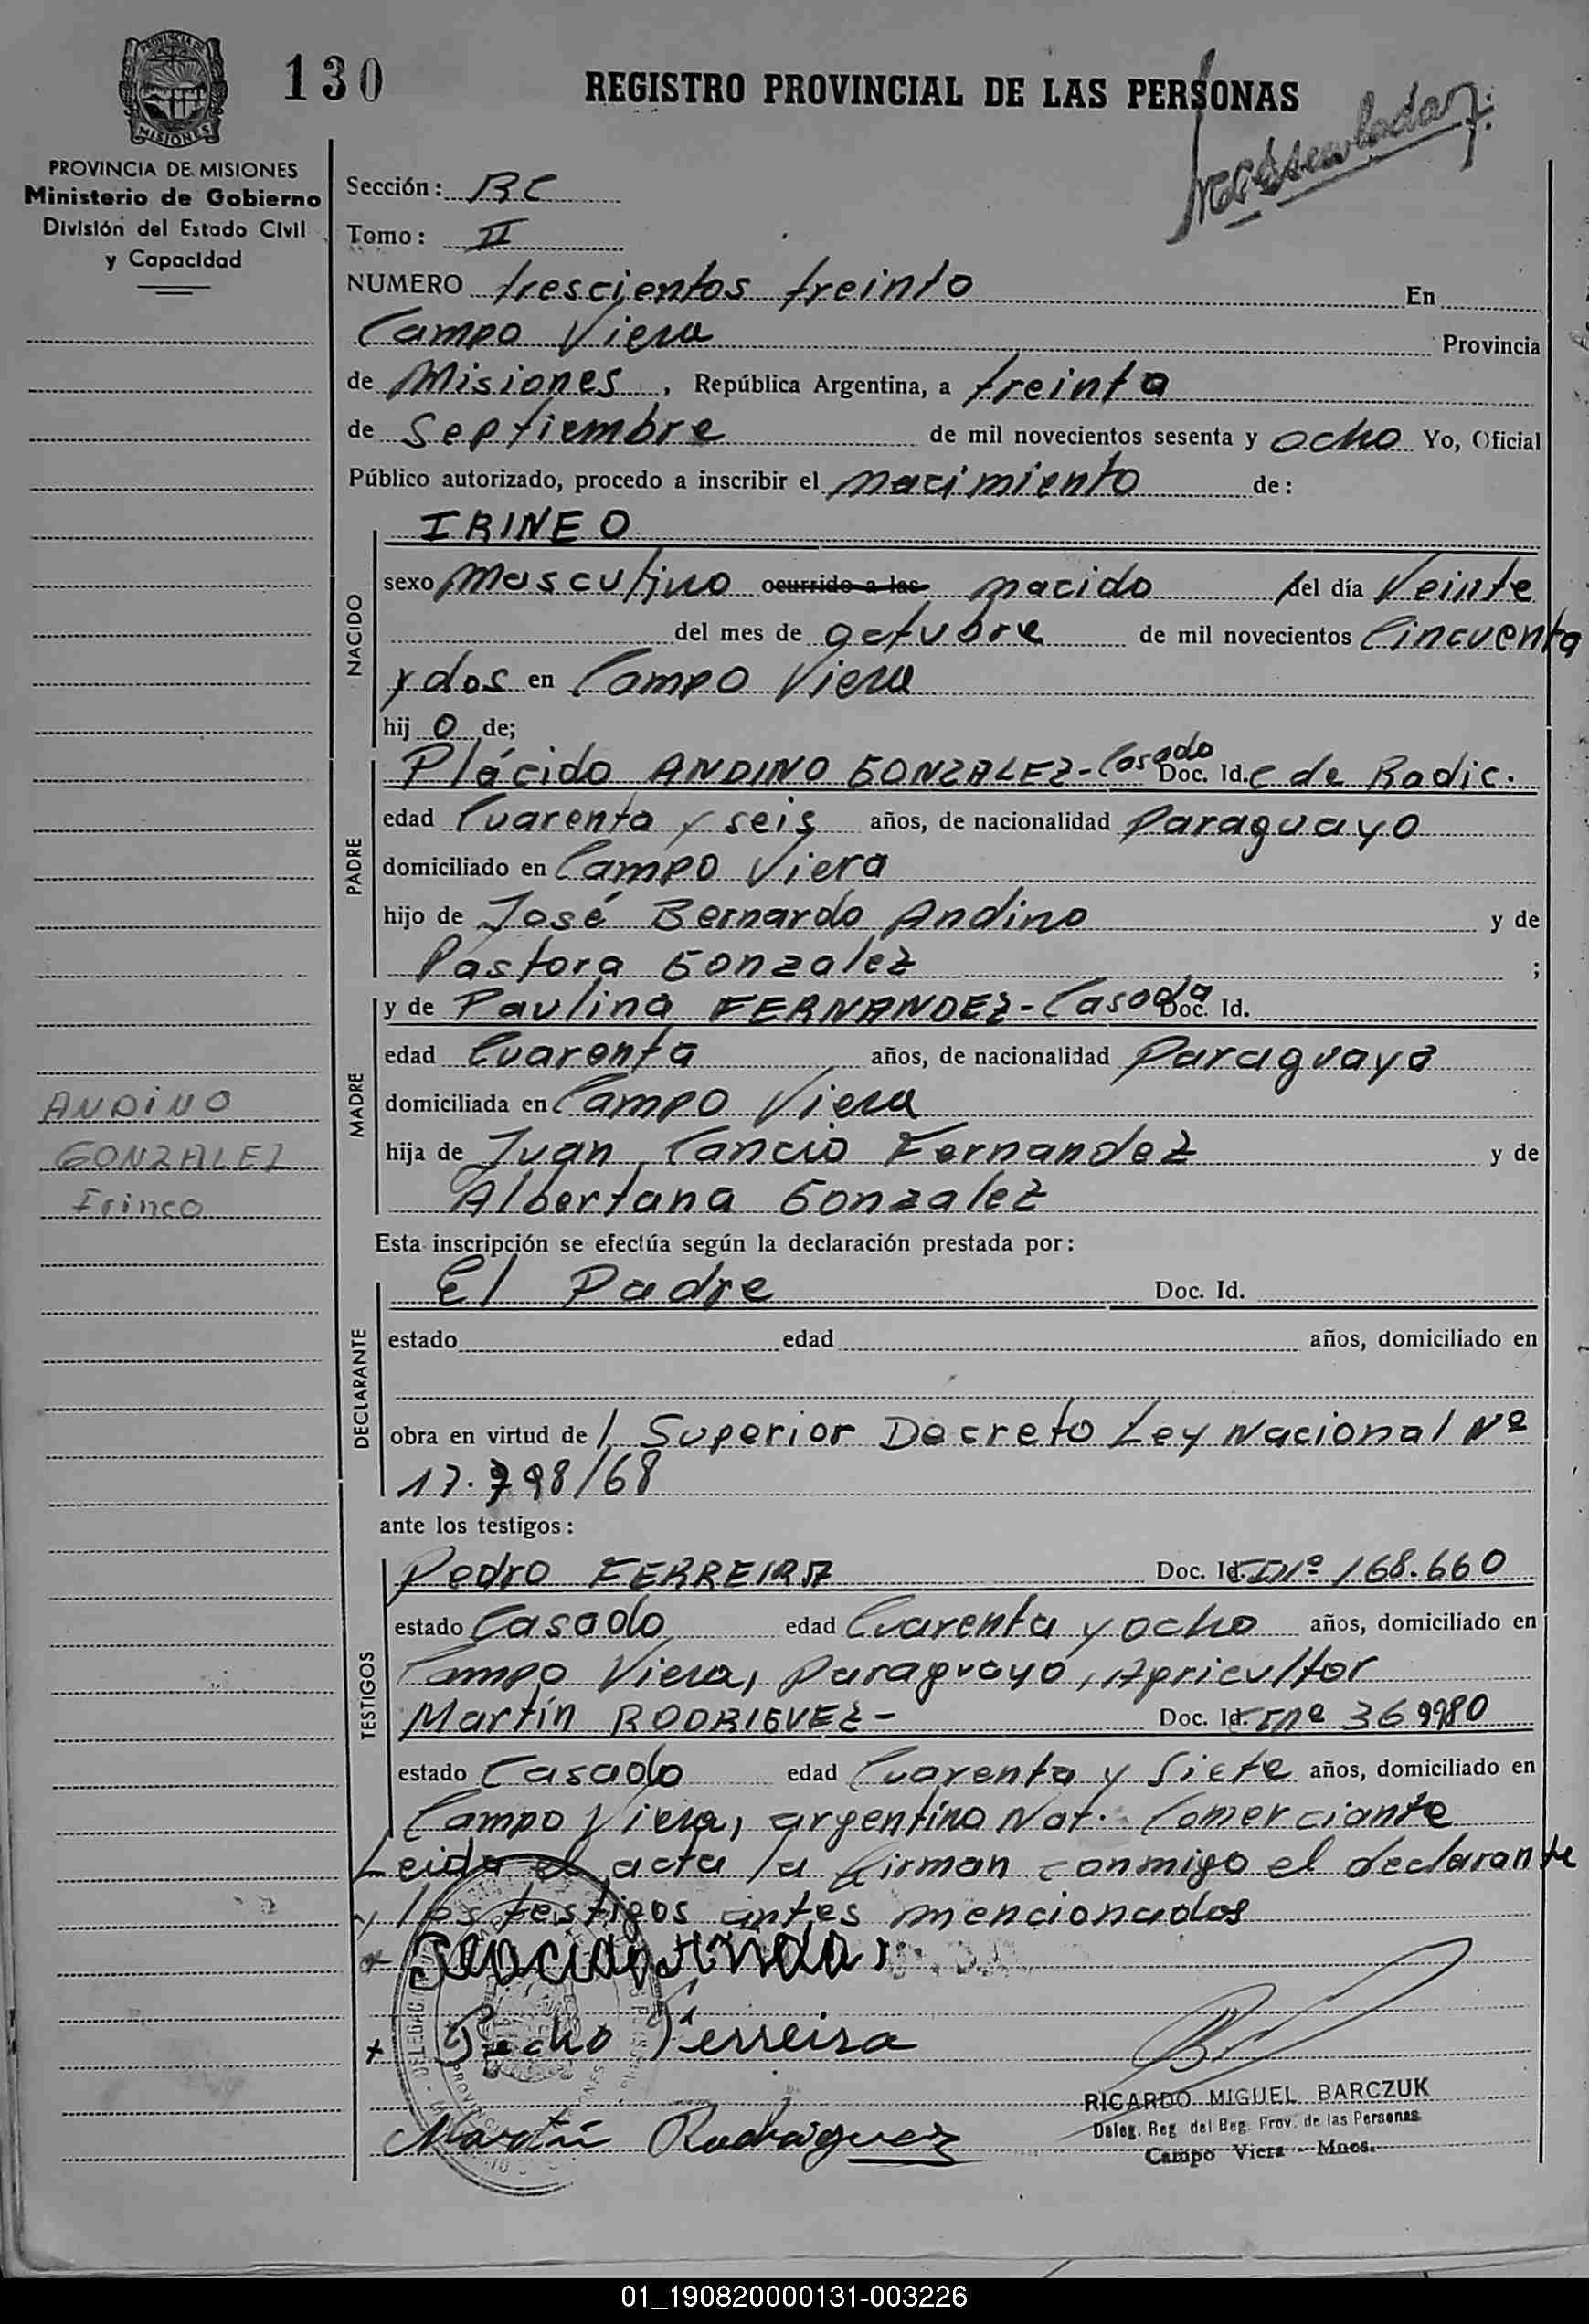 130
REGISTRO PROVINCIAL DE LAS PERSONAS
PROVINCIA DE MISIONES
MISIONES
PROVINCIA DE MISIONES
Ministerio de Gobierno
División del Estado Civil
y Capacidad
Sección: BC
Tomo: II
NUMERO trescientos treinta En
Campo Viera Provincia
de Misiones, República Argentina, a treinta
de Septiembre de mil novecientos sesenta y ocho Yo, Oficial
Público autorizado, procedo a inscribir el nacimiento de:
NACIDO
IRINEO
sexo Masculino ocurrido a las nacido del día Veinte
del mes de octubre de mil novecientos Cincuenta
y dos en Campo Viera
hij o de;
PADRE
Plácido ANDINO GONZALEZ-Casado Doc. Id. C de Radic.
edad Cuarenta y seis años, de nacionalidad Paraguayo
domiciliado en Campo Viera
hijo de José Bernardo Andino y de
Pastora Gonzalez ;
MADRE
y de Paulina FERNANDEZ-Casada Doc. Id.
edad Cuarenta años, de nacionalidad Paraguaya
domiciliada en Campo Viera
hija de Juan Cancio Fernandez y de
Albertana Gonzalez
ANDINO
GONZALEZ
Irineo
Esta inscripción se efectúa según la declaración prestada por:
DECLARANTE
El Padre Doc. Id.
estado edad años, domiciliado en
obra en virtud de l Superior Decreto Ley Nacional Nº
17.798/68
ante los testigos:
TESTIGOS
Pedro FERREIRA Doc. Id. CI Nº 168.660
estado Casado edad Cuarenta y ocho años, domiciliado en
Campo Viera, Paraguayo, Agricultor
Martín RODRIGUEZ- Doc. Id. CI nº 369980
estado Casado edad Cuarenta y Siete años, domiciliado en
Campo Viera, argentino Nat. Comerciante
Leida el acta la firman conmigo el declarante
y los testigos antes mencionados
Pedro Ferreira
Martín Rodriguez
RICARDO MIGUEL BARCZUK
Deleg. Reg. del Reg. Prov. de las Personas
Campo Viera - Mnes.
01_190820000131-003226